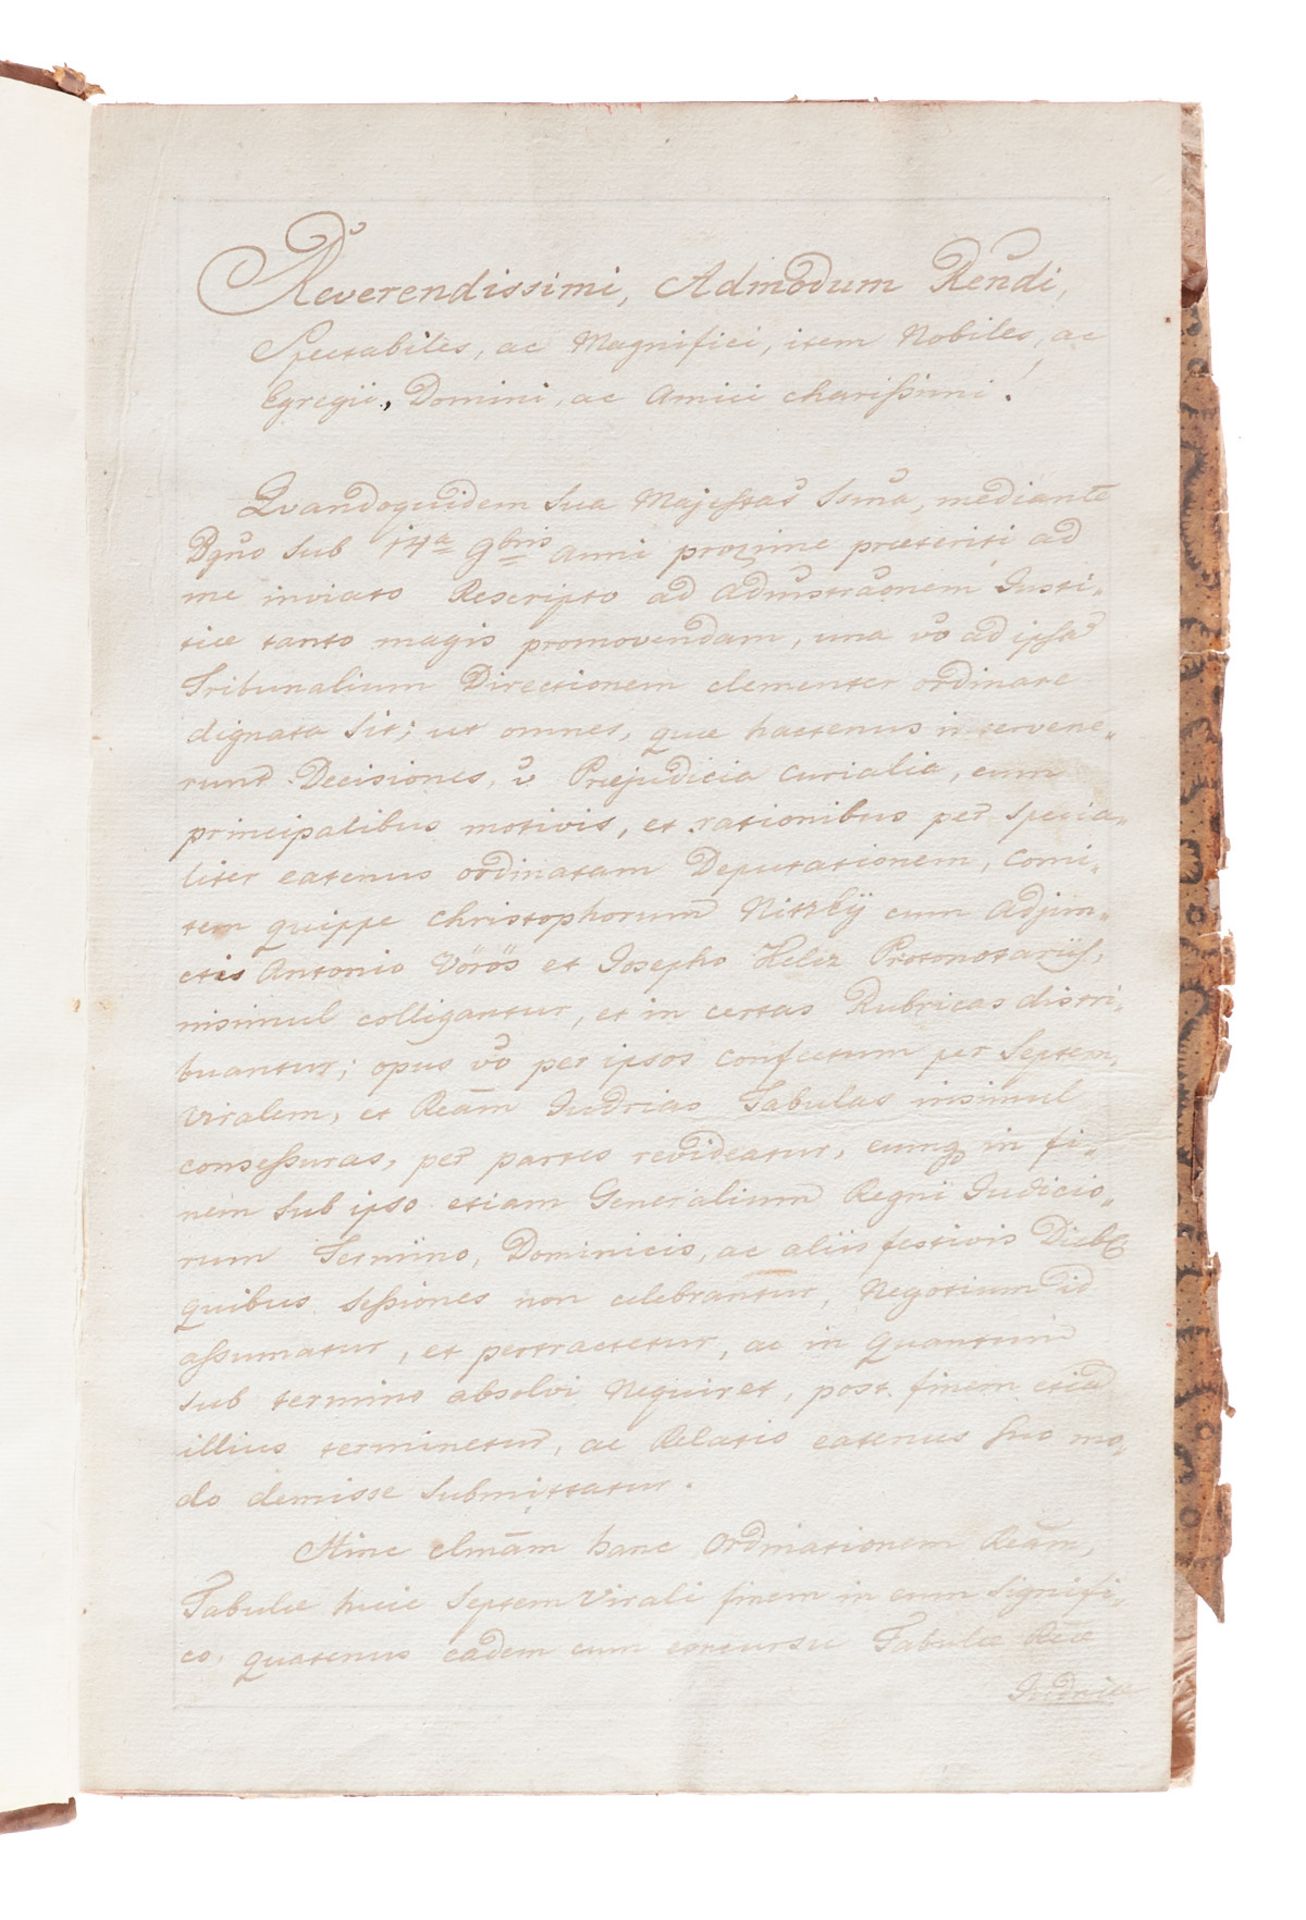 Reverendissimi, Admodum Rendi,
Spectabiles, ac Magnifici, item Nobiles, ac
Egregii, Domini, ac Amici charissimi!
Quandoquidem Sua Majestas Ssma, mediante
Bgno sub 14a 9bris anni proxime præteriti ad
me inviato Rescripto ad adm̃strãonem Justi„
tiæ tanto magis promovendam, una vo ad ipsa
Tribunalium Directionem clementer ordinare
dignata sit; ut omnes, quæ hactenus intervene„
runt Decisiones, v Præjudicia Curialia, cum
principalibus motivis, et rationibus per specia„
liter eatenus ordinatam Deputationem, Comi„
tem quippe Christophorum Nitzky cum Adjun„
ctis Antonio Vörös et Josepho Protonotariis,
insimul colligantur, et in certas Rubricas distri„
buantur; opus vo per ipsos confectum per Septem„
viralem, et Reãm Judrias Tabulas insimul
consessuras, per partes revideatur, eumq in fi„
nem sub ipso etiam Generalium Regni Judicio„
rum Termino, Dominicis, ac aliis festivis Dieb
quibus sessiones non celebrantur, Negotium id
assumatur, et pertractetur, ac in quantum
sub termino absolvi nequiret, post finem etia
illius terminetur, ac Relatio eatenus suo mo„
do demisse submittatur.
Hinc clmãm hanc Ordinationem Reãm,
Tabulæ huic Septem Virali finem in eum signifi„
co, quatenus eadem cum concursu Tabulæ Reæ
Judriæ